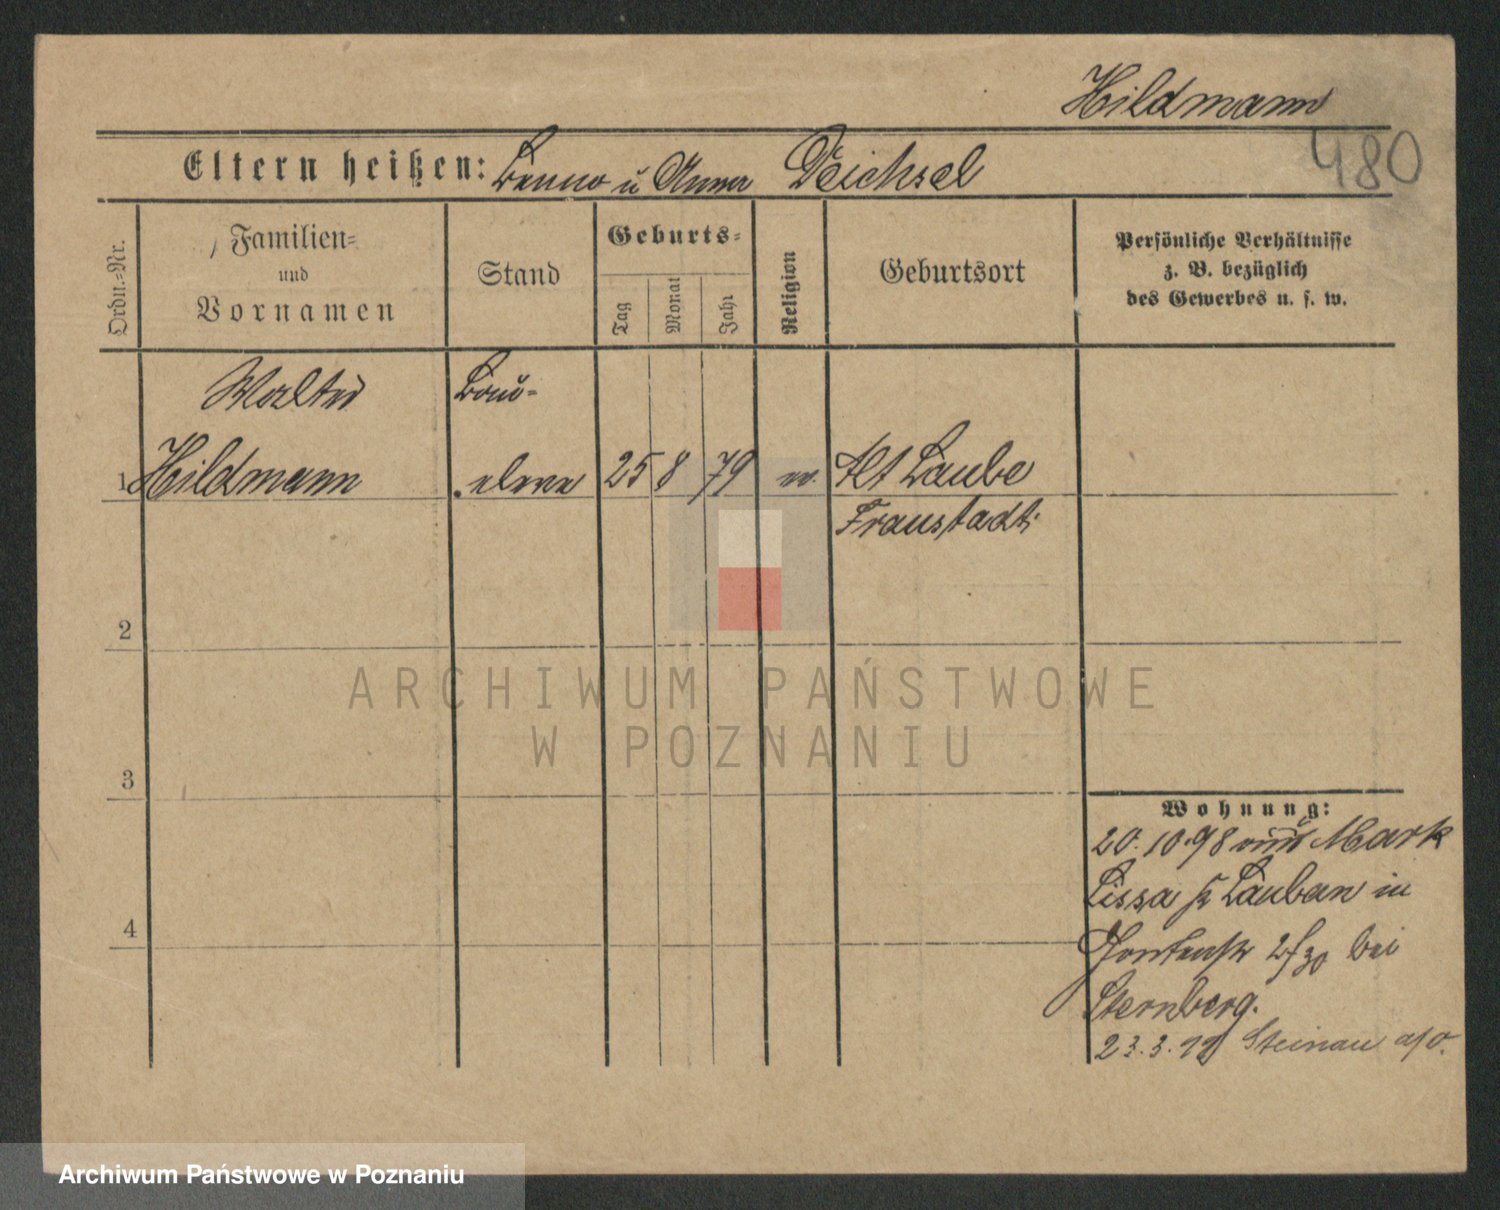 Hildmann
480
Eltern heißen: Benno u Anna Deichsel
Ordn.=Nr.
Familien=
und
Vornamen
Stand
Geburts=
Tag
Monat
Jahr
Religion
Geburtsort
Persönliche Verhältnisse
z. B. bezüglich
des Gewerbes u. s. w.
Walter
Bau-
1 Hildmann
eleve
25 8 79
ev.
Alt Laube
Fraustadt
2
3
4
Wohnung:
20.10.98 Mark
Lissa Lauban in
bei
Sternberg.
23.3. Steinau a/O.
ARCHIWUM PAŃSTWOWE
W POZNANIU
Archiwum Państwowe w Poznaniu